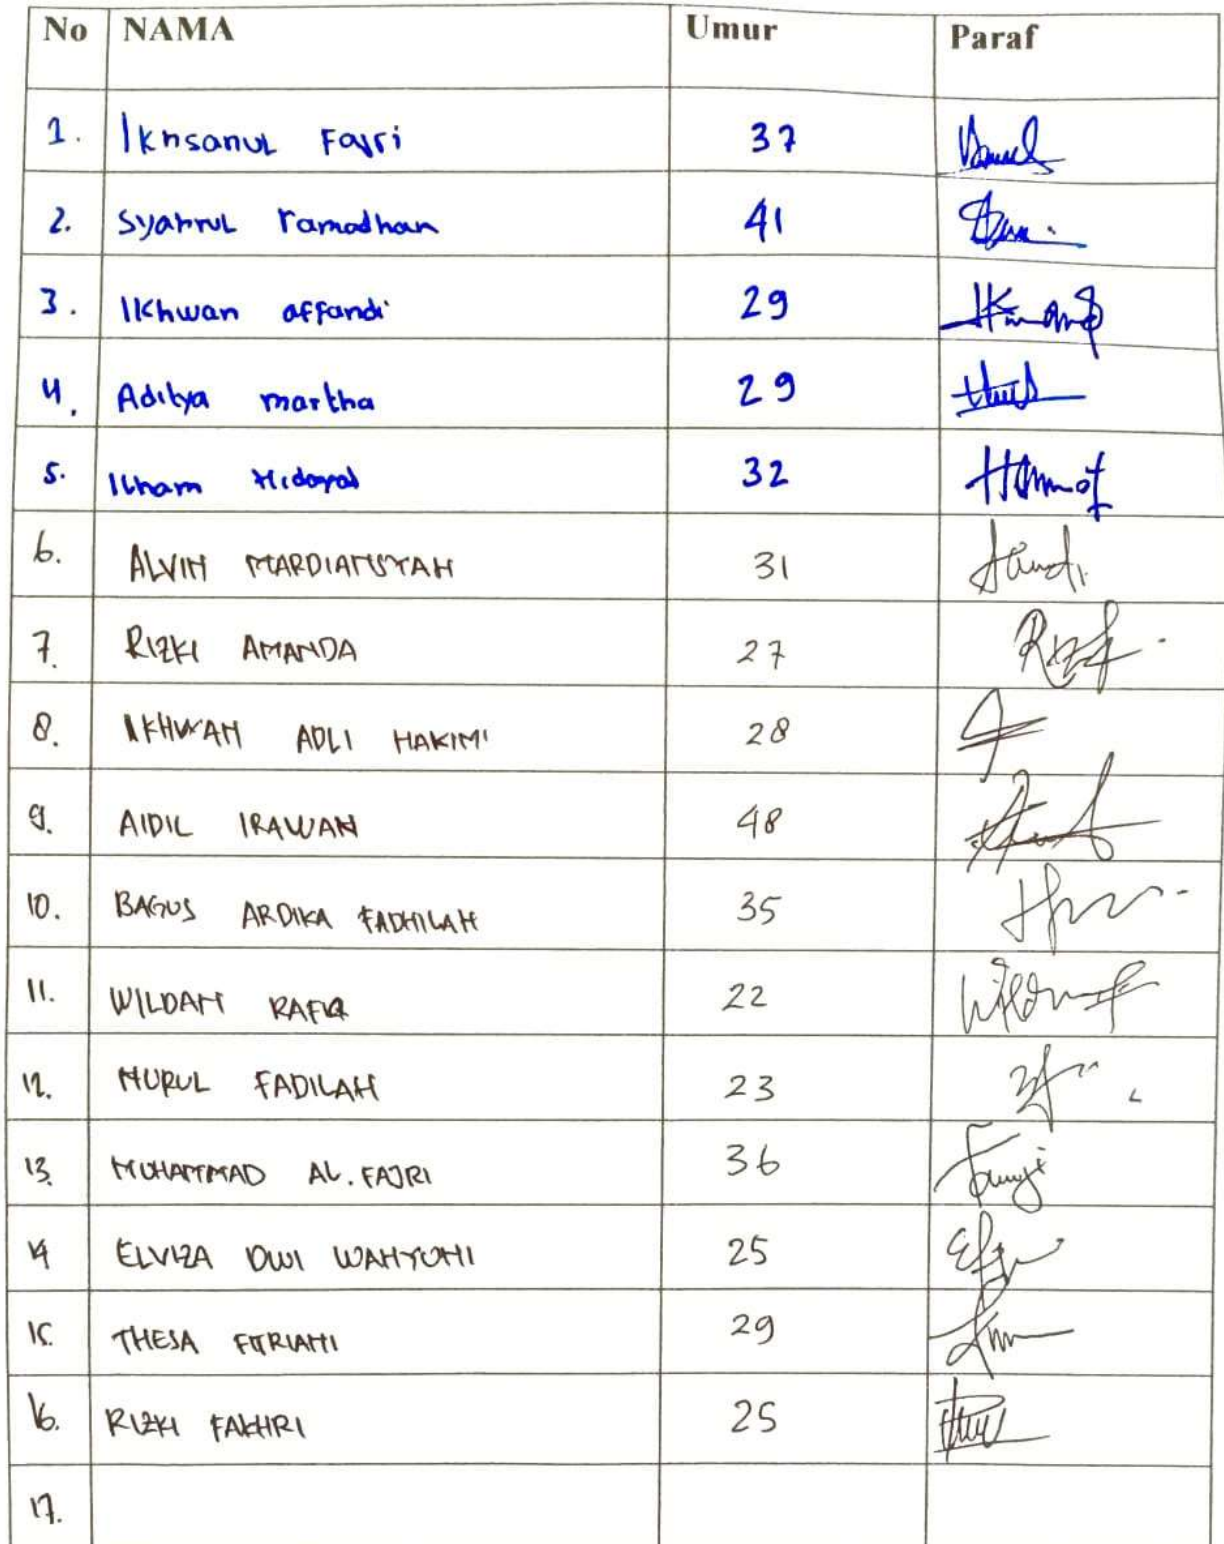 No NAMA Umur Paraf
1. Ikhsanul Fajri 37
2. Syahrul ramadhan 41
3. Ikhwan affandi 29
4. Aditya martha 29
5. Ilham Hidayat 32
6. ALVIN MARDIANSYAH 31
7. RIZKI AMANDA 27
8. IKHWAN ADLI HAKIMI 28
9. AIDIL IRAWAN 48
10. BAGUS ARDIKA FADHILAH 35
11. WILDAN RAFIQ 22
12. NURUL FADILAH 23
13. MUHAMMAD AL.FAJRI 36
14 ELVIZA DWI WAHYUNI 25
15. THESA FITRIANI 29
16. RIZKI FAKHRI 25
17.